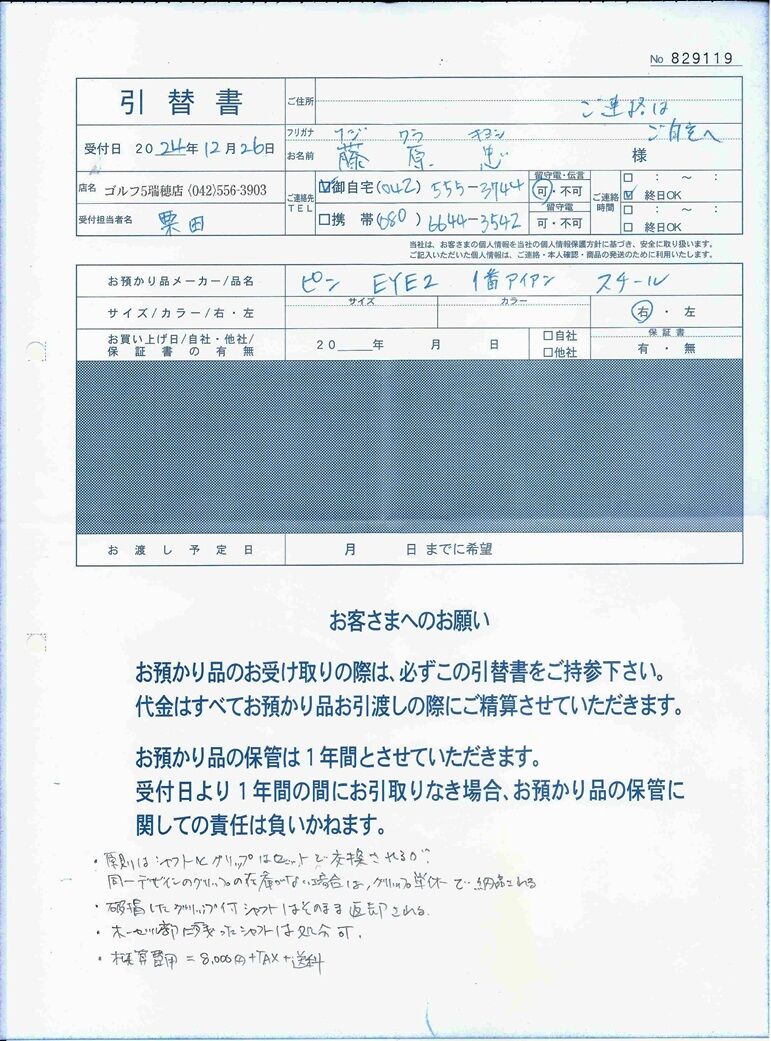 No 829119
引替書
ご住所
ご連絡は
ご自宅へ
受付日 2024年12月26日
フリガナ フジ ワラ
お名前 藤 原 忠 様
店名 ゴルフ5瑞穂店 (042)556-3903
受付担当者名 栗田
ご連絡先 TEL
☑御自宅(042) 555-3744
留守電・伝言
可・不可
□携 帯(080) 6644-3542
留守電
可・不可
ご連絡時間
□ : ~ :
☑ 終日OK
□ : ~ :
□ 終日OK
当社は、お客さまの個人情報を当社の個人情報保護方針に基づき、安全に取り扱います。
ご記入いただいた個人情報は、ご連絡・本人確認・商品の発送のために利用いたします。
お預かり品メーカー/品名 ピン EYE2 1番アイアン スチール
サイズ/カラー/右・左
サイズ
カラー
右・左
お買い上げ日/自社・他社/
保証書の有無
20 年 月 日
□自社
□他社
保証書
有・無
お渡し予定日 月 日 までに希望
お客さまへのお願い
お預かり品のお受け取りの際は、必ずこの引替書をご持参下さい。
代金はすべてお預かり品お引渡しの際にご精算させていただきます。
お預かり品の保管は1年間とさせていただきます。
受付日より1年間の間にお引取りなき場合、お預かり品の保管に
関しての責任は負いかねます。
・原則はシャフトとグリップはセットで交換されるが、
同一デザインのグリップの在庫がない場合は、グリップ単体で納品される
・破損したグリップ付シャフトはそのまま返却される.
・ホーゼル部に残ったシャフトは処分可.
・概算費用=8,000円+TAX+送料